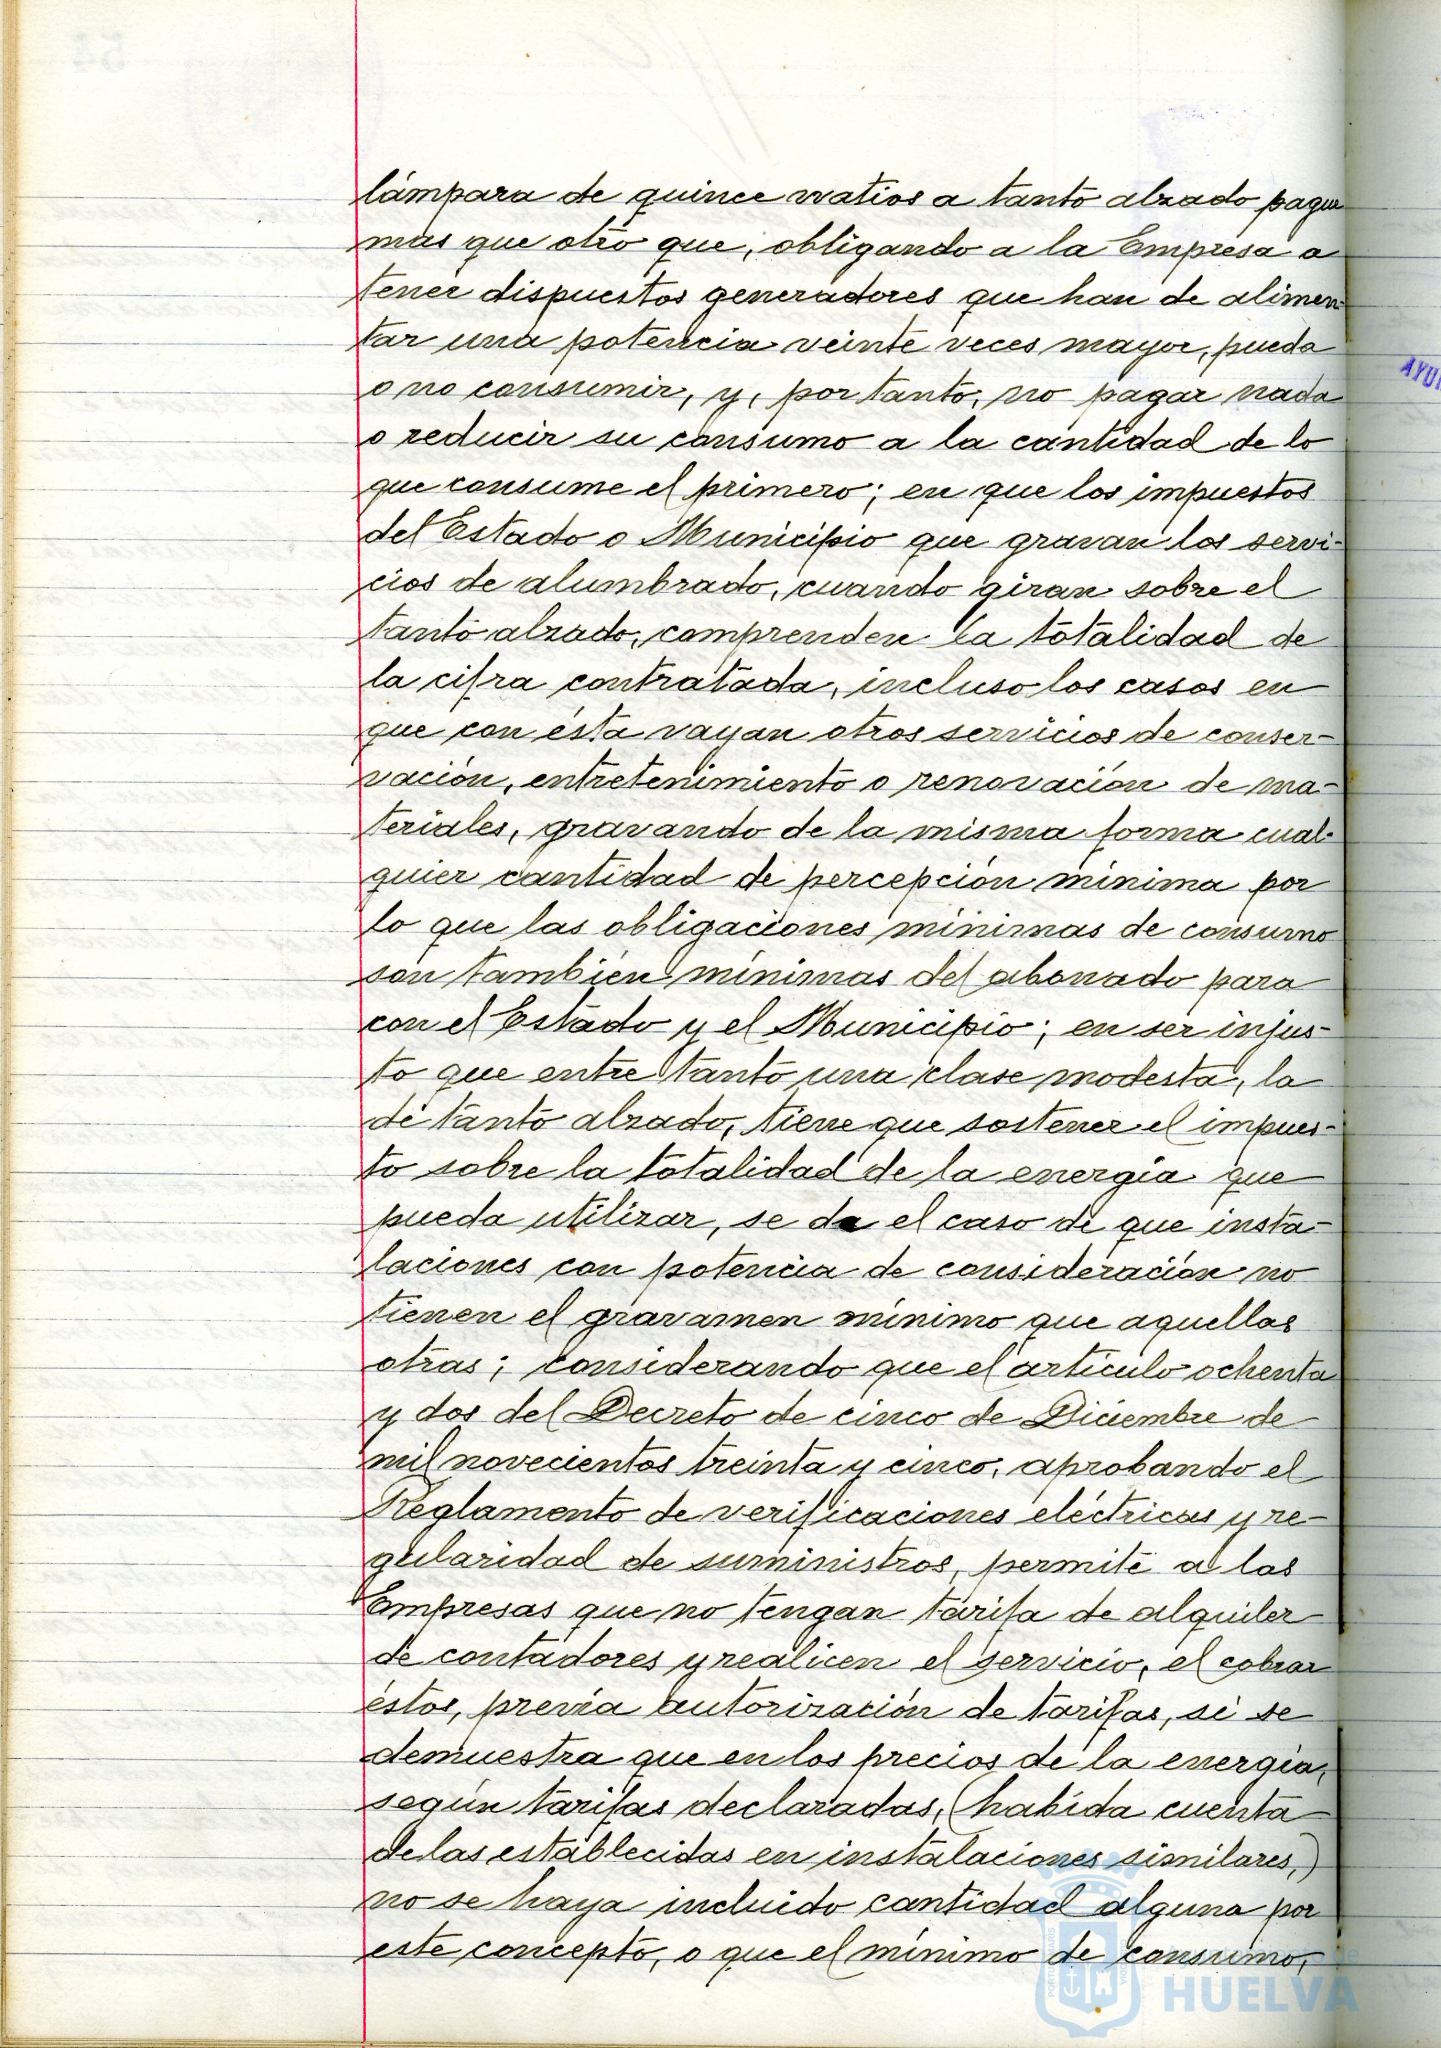 lámpara de quince watios a tanto alzado pague
mas que otro que, obligando a la Empresa a
tener dispuestos generadores que han de alimen-
tar una potencia veinte veces mayor, pueda
o no consumir, y, por tanto, no pagar nada
o reducir su consumo a la cantidad de lo
que consume el primero; en que los impuestos
del Estado o Municipio que gravan los servi-
cios de alumbrado, cuando giran sobre el
tanto alzado, comprenden la totalidad de
la cifra contratada, incluso los casos en
que con ésta vayan otros servicios de conser-
vación, entretenimiento o renovación de ma-
teriales, gravando de la misma forma cual-
quier cantidad de percepción mínima por
lo que las obligaciones mínimas de consumo
son también mínimas del abonado para
con el Estado y el Municipio; en ser injus-
to que entre tanto una clase modesta, la
de tanto alzado, tiene que sostener el impues-
to sobre la totalidad de la energía que
pueda utilizar, se da el caso de que insta-
laciones con potencia de consideración no
tienen el gravamen mínimo que aquellas
otras; considerando que el artículo ochenta
y dos del Decreto de cinco de Diciembre de
mil novecientos treinta y cinco, aprobando el
Reglamento de verificaciones eléctricas y re-
gularidad de suministros, permite a las
Empresas que no tengan tarifa de alquiler
de contadores y realicen el servicio, el cobrar
éstos, previa autorización de tarifas, si se
demuestra que en los precios de la energía,
según tarifas declaradas, (habida cuenta
de las establecidas en instalaciones similares,)
no se haya incluido cantidad alguna por
este concepto, o que el mínimo de consumo,
HUELVA